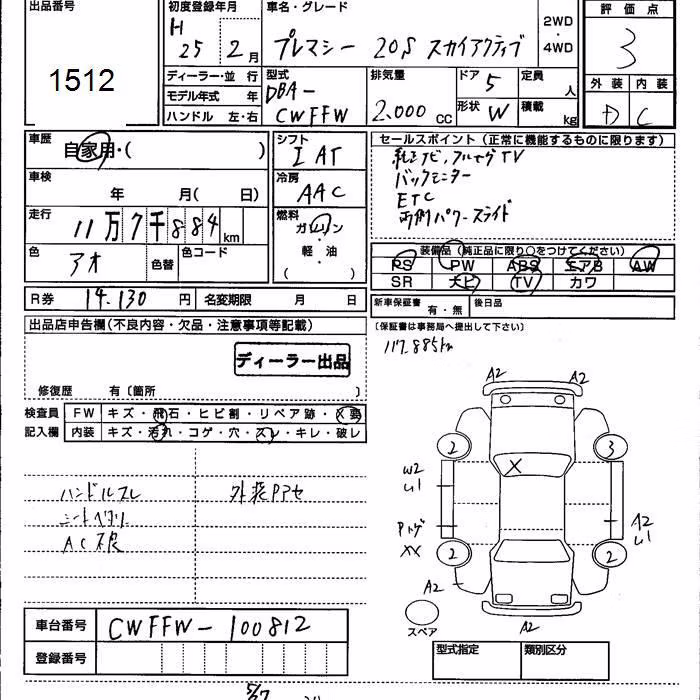 出品番号 初度登録年月 車名・グレード 評価点
1512 H 25 2月 プレマシー 20S スカイアクティブ 2WD・4WD 3
ディーラー・並行 型式 排気量 ドア 5 定員 人 外装 内装
モデル年式 年 DBA- 2.000 CC 形状 W 積載 kg D C
ハンドル 左・右 CWFFW
車歴 自家用・( ) シフト IAT セールスポイント(正常に機能するものに限ります)
車検 年 月(日) 冷房 AAC 純正ナビ,フルセグTV
バックモニター
ETC
両側パワースライド
走行 11万7千884km 燃料 ガソリン・軽・油 ( )
色 アオ 色替 色コード 装備品(純正品に限り○をつけてください)
PS PW ABS エアB AW
SR ナビ TV カワ
R券 14.130円 名変期限 月 日 新車保証書 有・無 後日品
出品店申告欄(不良内容・欠品・注意事項等記載) (保証書は事務局へ提出して下さい)
ディーラー出品 117.885km
修復歴 有〔箇所 〕
検査員 FW キズ・飛石・ヒビ割・リペア跡・X要
記入欄 内装 キズ・汚れ・コゲ・穴・スレ・キレ・破レ
ハンドルスレ 外装Pアセ
シートヘタリ
AC不良
A2 A2
2 3
X
W2
A2
XX 2 2
A2
スペア A2
車台番号 CWFFW-100812
登録番号
型式指定 類別区分